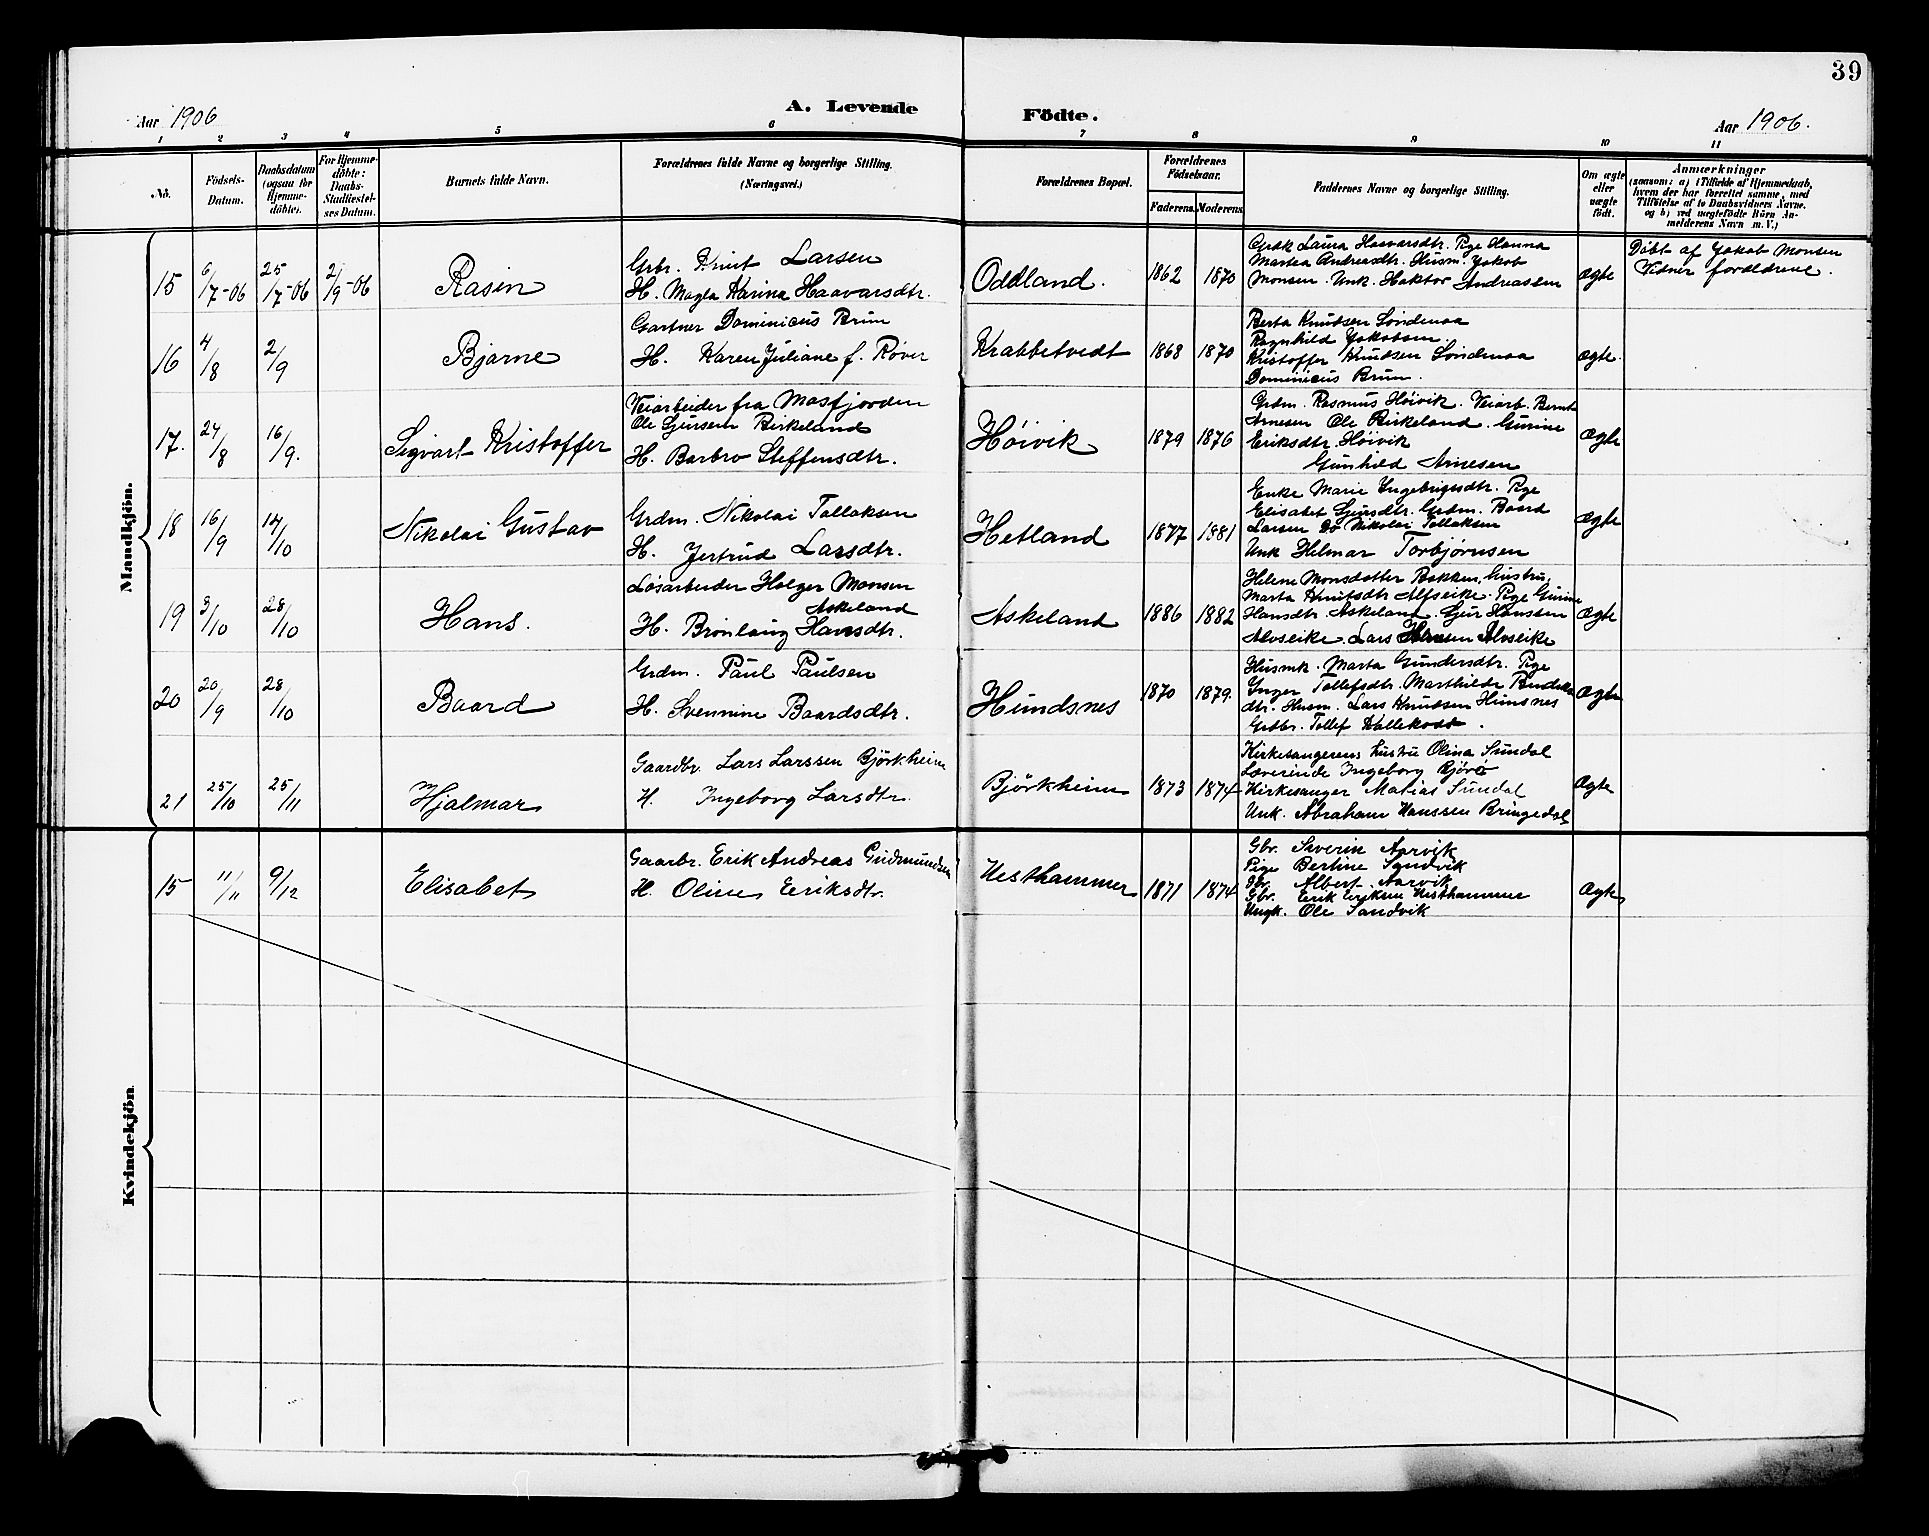 39
Aar 1906
A. Levende
Födte.
Aar 1906.
1 2 3 4 5 6 7 8 9 10 11
No.
Födsels-Datum.
Daabsdatum (ogsaa for Hjemme-döbte).
For Hjemme-döbte: Daabs-Stadfæstel-ses Datum.
Barnets fulde Navn.
Forældrenes fulde Navne og borgerlige Stilling.
(Næringsvei.)
Forældrenes Bopæl.
Forældrenes Födselsaar.
Faderens. Moderens.
Faddernes Navne og borgerlige Stilling.
Om ægte eller uægte födt.
Anmærkninger
(saasom: a) i Tilfælde af Hjemmedaab,
hvem der har forrettet samme, med
Tilföielse af to Daabsvidners Navne.
og b) ved uægtefödte Börn An-
melderens Navn m. V.)
Mandkjön.
15 6/7-06 25/7-06 2/9-06 Rasin
Grbr. Knut Larsen
H. Magla Karina Haavarsdtr.
Oddland. 1862 1870
Grdk Laura Haavarsdtr. Pge Hanna
Martea Andreasdtr. Husm. Jakob
Monsen. Unk. Haktor Andreassen
ægte
Döbt af Jakob Monsen
Vidner foreldrene.
16 4/8 2/9 Bjarne
Gartner Dominicus Brun
H. Karen Juliane f. Röver
Krabbetvedt 1868 1870
Berta Knutsen Söndenaa
Ragnhild Jakobsen,
Kristoffer Knudsen Söndenaa
Dominicus Brun.
ægte
17. 24/8 16/9. Sigvart Kristoffer
Veiarbeider fra Masfjorden
Ole Gjursen Birkeland
H. Barbro Steffensdtr.
Höivik 1879 1876
Grdm. Rasmus Höivik. Veiarb. Bernt
Arnesen Ole Birkeland. Gurine
Eriksdtr. Höivik
Gunhild Arnesen
ægte
18 16/9 14/10 Nikolai Gustav
Grdm. Nikolai Tollaksen
H. Jertrud Larsdtr.
Hetland 1877 1881
Enke Marie Ingebrigtsdtr. Pge
Elisabet Gjursdtr. Grdm. Baard
Larsen Do Nikolai Tollaksen
Unk Helmar Torbjörnsen
ægte
19 3/10 28/10 Hans.
Lösarbeider Holger Monsen
Askeland
H. Brönlaug Hansdtr.
Askeland 1886 1882
Helene Monsdatter Bakken, Gustru,
Marta Knutsdtr Alfseike. Pge Gurine
Hansdtr. Askeland. Gjur Hanssen
Alvseike. Lars Hansen Alvseike
ægte
20 20/9 28/10 Baard
Grdm. Paul Paulsen
H. Svennine Baardsdtr.
Hundsnes 1870 1879.
Husmk. Marta Gundersdtr. Pge
Inger Tollefsdtr. Marthilde
dtr. Husm. Lars Knutsen Hunsnes
Grdbr. Tollef
ægte
21 25/10 25/11 Hjalmar
Gaardbr. Lars Larssen Björkheim
H. Ingeborg Larsdtr.
Björkheim 1873 1874
Kirkesangerens hustru Olina Sundal
Læverinde Ingeborg
Kirkesanger Matias Sundal
Unk. Abraham Hanssen Bringedal
ægte
Kvindekjön
15 11/11 9/12 Elisabet
Gaarbr. Erik Andreas Gudmundsen
H. Oline Eriksdtr.
Vesthammer 1871 1874
Gbr. Severin Aarvik
Pige Bertine Sandvik
Gbr. Albert Aarvik
Gbr. Erik Eriksen Vesthammer
Ungk. Ole Sandvik
ægte